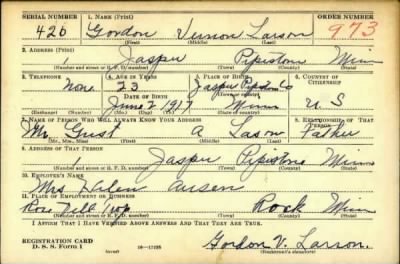 SERIAL NUMBER 1. NAME (Print) ORDER NUMBER
426 Gordon Vernon Larson 973
(First) (Middle) (Last)
2. ADDRESS (Print)
1 Jasper Pipestone Minn
(Number and street or R. F. D. number) (Town) (County) (State)
3. TELEPHONE 4. AGE IN YEARS 5. PLACE OF BIRTH 6. COUNTRY OF CITIZENSHIP
None 23 Jasper Pipestone Co
DATE OF BIRTH (Town) (County)
June 2 1917 Minn U. S
(Exchange) (Number) (Mo.) (Day) (Yr.) (State or country)
7. NAME OF PERSON WHO WILL ALWAYS KNOW YOUR ADDRESS 8. RELATIONSHIP OF THAT PERSON
Mr. Gust A Larson Father
(Mr., Mrs., Miss) (First) (Middle) (Last)
9. ADDRESS OF THAT PERSON
1 Jasper Pipestone Minn
(Number and street or R. F. D. number) (Town) (County) (State)
10. EMPLOYER'S NAME
Mrs
11. PLACE OF EMPLOYMENT OR BUSINESS
Rose Dell Twp Rock Minn
(Number and street or R. F. D. number) (Town) (County) (State)
I AFFIRM THAT I HAVE VERIFIED ABOVE ANSWERS AND THAT THEY ARE TRUE.
REGISTRATION CARD
D. S. S. Form 1 (over) 16—17105 Gordon V. Larson
(Registrant's signature)